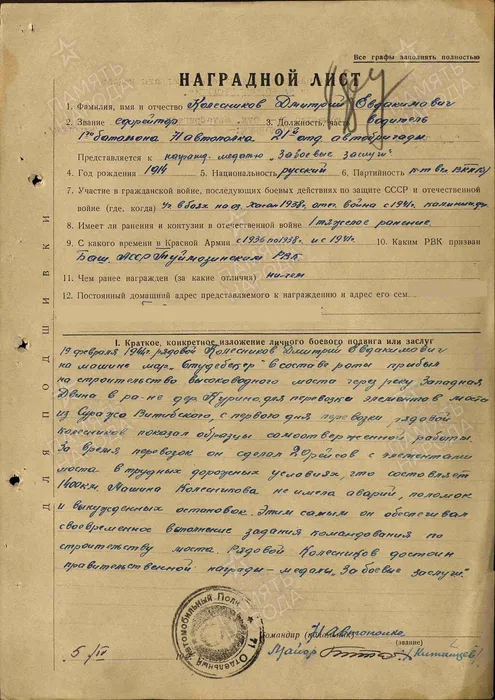 Все графы заполнять полностью
НАГРАДНОЙ ЛИСТ
1. Фамилия, имя и отчество Колесников Дмитрий Евдакимович
2. Звание 3. Должность, часть водитель
батальона 71 автополка. 21й отд. автобригады
Представляется к наград. медалью „За боевые заслуги"
4. Год рождения 1914 5. Национальность русский 6. Партийность
7. Участие в гражданской войне, последующих боевых действиях по защите СССР и отечественной
войне (где, когда) 1938г.
8. Имеет ли ранения и контузии в отечественной войне 1 тяжелое ранение.
9. С какого времени в Красной Армии с 1936 по 1938г. и с 1941г. 10. Каким РВК призван
Баш. АССР Туймазинским РВК
11. Чем ранее награжден (за какие отличия) ни чем
12. Постоянный домашний адрес представляемого к награждению и адрес его сем
ДЛЯ ПОДШИВКИ
I. Краткое, конкретное изложение личного боевого подвига или заслуг
19 февраля 1944г. рядовой Колесников Дмитрий Евдакимович
на машине мар. „Студебекер" в составе роты прибыл
на строительство высоководного моста через реку Западная
Двина в ра-не дер. Курино, для перевозки элементов моста
из Суража Витебского, с первого дня перевозки рядовой
Колесников показал образцы самоотверженной работы.
За время перевозок он сделал 20 рейсов с элементами
моста в трудных дорожных условиях, что составляет
1400 км. Машина Колесникова не имела аварий, поломок
и вынужденных остановок. Этим самым он обеспечивал
своевременное выполнение задания командования по
строительству моста. Рядовой Колесников достоин
правительственной награды - медаль „За боевые заслуги".
Командир 71 автополка
(звание)
Майор (Китайцев)
5/IV
71 Отдельный Автомобильный Полк
ПАМЯТЬ НАРОДА